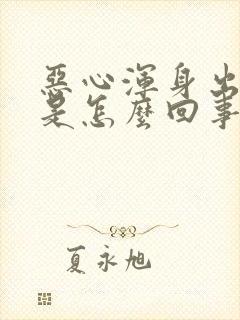 惡心渾身出
是怎麼回事
夏永旭